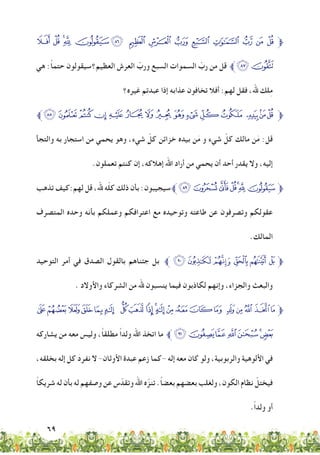 ﴿ قُلْ مَن رَّبُّ السَّمَاوَاتِ السَّبْعِ وَرَبُّ الْعَرْشِ الْعَظِيمِ ٨٦ سَيَقُولُونَ لِلَّهِ قُلْ أَفَلَا
تَتَّقُونَ ٨٧ ﴾ قل من ربّ السموات السبع وربّ العرش العظيم؟ سيقولون حتماً: هي
ملك لله، فقل لهم: أفلا تخافون عذابه إذا عبدتم غيره؟
﴿ قُلْ مَن بِيَدِهِ مَلَكُوتُ كُلِّ شَيْءٍ وَهُوَ يُجِيرُ وَلَا يُجَارُ عَلَيْهِ إِن كُنتُمْ تَعْلَمُونَ ٨٨ ﴾
قل: مَن مالك كلّ شيء و مَن بيده خزائن كلّ شيء، وهو يحمي من استجار به والتجأ
إليه، ولا يقدر أحد أن يحمي من أراد الله إهلاكه، إن كنتم تعلمون.
﴿ سَيَقُولُونَ لِلَّهِ قُلْ فَأَنَّى تُسْحَرُونَ ٨٩ ﴾ سيجيبون: بأن ذلك كله لله، قل لهم: كيف تذهب
عقولكم وتصرفون عن طاعته وتوحيده مع اعترافكم وعملكم بأنه وحده المتصرف
المالك.
﴿ بَلْ أَتَيْنَاهُم بِالْحَقِّ وَإِنَّهُمْ لَكَاذِبُونَ ٩٠ ﴾ بل جئناهم بالقول الصدق في أمر التوحيد
والبعث والجزاء، وإنهم لكاذبون فيما ينسبون لله من الشركاء والأولاد .
﴿ مَا اتَّخَذَ اللَّهُ مِن وَلَدٍ وَمَا كَانَ مَعَهُ مِنْ إِلَهٍ إِذًا لَّذَهَبَ كُلُّ إِلَهٍ بِمَا خَلَقَ وَلَعَلَا بَعْضُهُمْ عَلَى
بَعْضٍ سُبْحَانَ اللَّهِ عَمَّا يَصِفُونَ ٩١ ﴾ ما اتخذ الله ولداً مطلقاً، وليس معه من يشاركه
في الألوهية والربوبية، ولو كان معه إله -كما زعم عبدة الأوثان- لا نفرد كل إله بخلقه،
فيختلّ نظام الكون، ولغلب بعضهم بعضاً. تنزّه الله وتقدّس عن وصفهم له بأن له شريكاً
أو ولداً.
٦٩